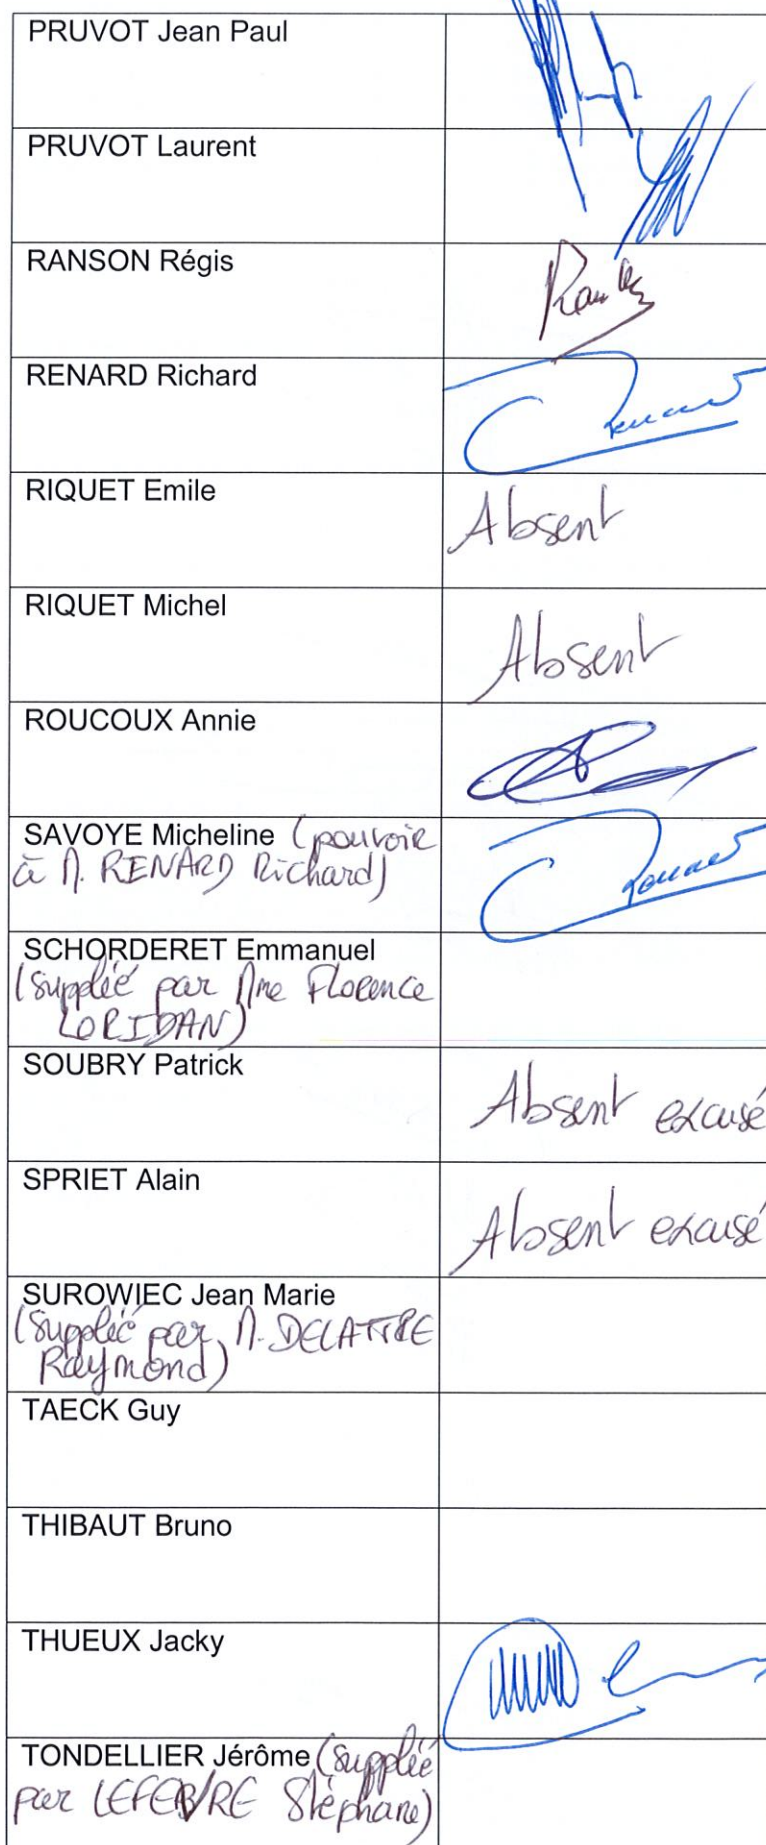 PRUVOT Jean Paul
PRUVOT Laurent
RANSON Régis
RENARD Richard
RIQUET Emile
Absent
RIQUET Michel
Absent
ROUCOUX Annie
SAVOYE Micheline (pouvoir
à M. RENARD Richard)
SCHORDERET Emmanuel
(Supplié par Mme Florence
LORIDAN)
SOUBRY Patrick
Absent excusé
SPRIET Alain
Absent excusé
SUROWIEC Jean Marie
(Supplié par M. DELATTRE
Raymond)
TAECK Guy
THIBAUT Bruno
THUEUX Jacky
TONDELLIER Jérôme (Supplié
par LEFEBVRE Stéphane)